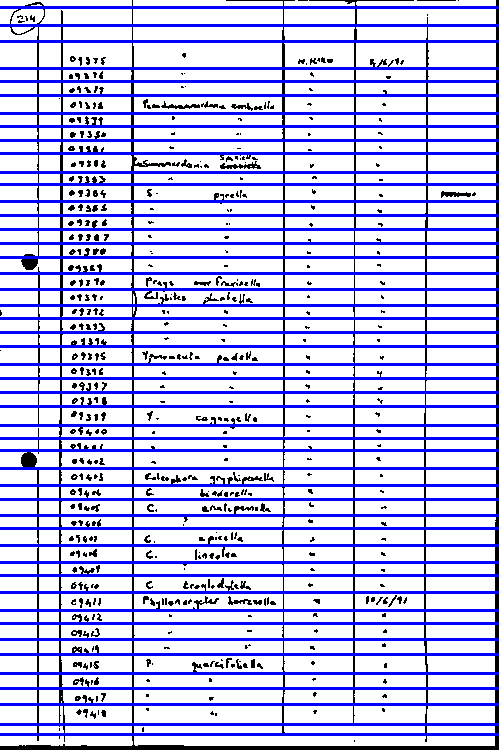 234
09375 " N. KIRW 5/6/91
09376 " " "
09377 " " "
09378 "
09379 " " " "
09380 " " " "
09381 " " " "
09382 Swammerdania spiniella " "
09383 " " " "
09384 S. pyrella " "
09385 " " "
09386 " " "
09387 " " "
09388 " " "
09389 " " "
09390 Prays fraxinella " "
09391 Calybites " "
09392 " " " "
09393 " " " "
09394 " " " "
09395 Yponomeuta padella " "
09396 " " " "
09397 " " " "
09398 " " " "
09399 Y. cagnagella " "
09400 " " " "
09401 " " " "
09402 " " " "
09403 Coleophora gryphipennella " "
09404 C. binderella " "
09405 C. " "
09406 ? " "
09407 C. apicella " "
09408 C. lineolea " "
09409 " " "
09410 C troglodytella " "
09411 Phyllonorycter 10/6/91
09412 " " " "
09413 " " " "
09414 " " " "
09415 P. quercifoliella " "
09416 " " " "
09417 " " " "
09418 " " " "